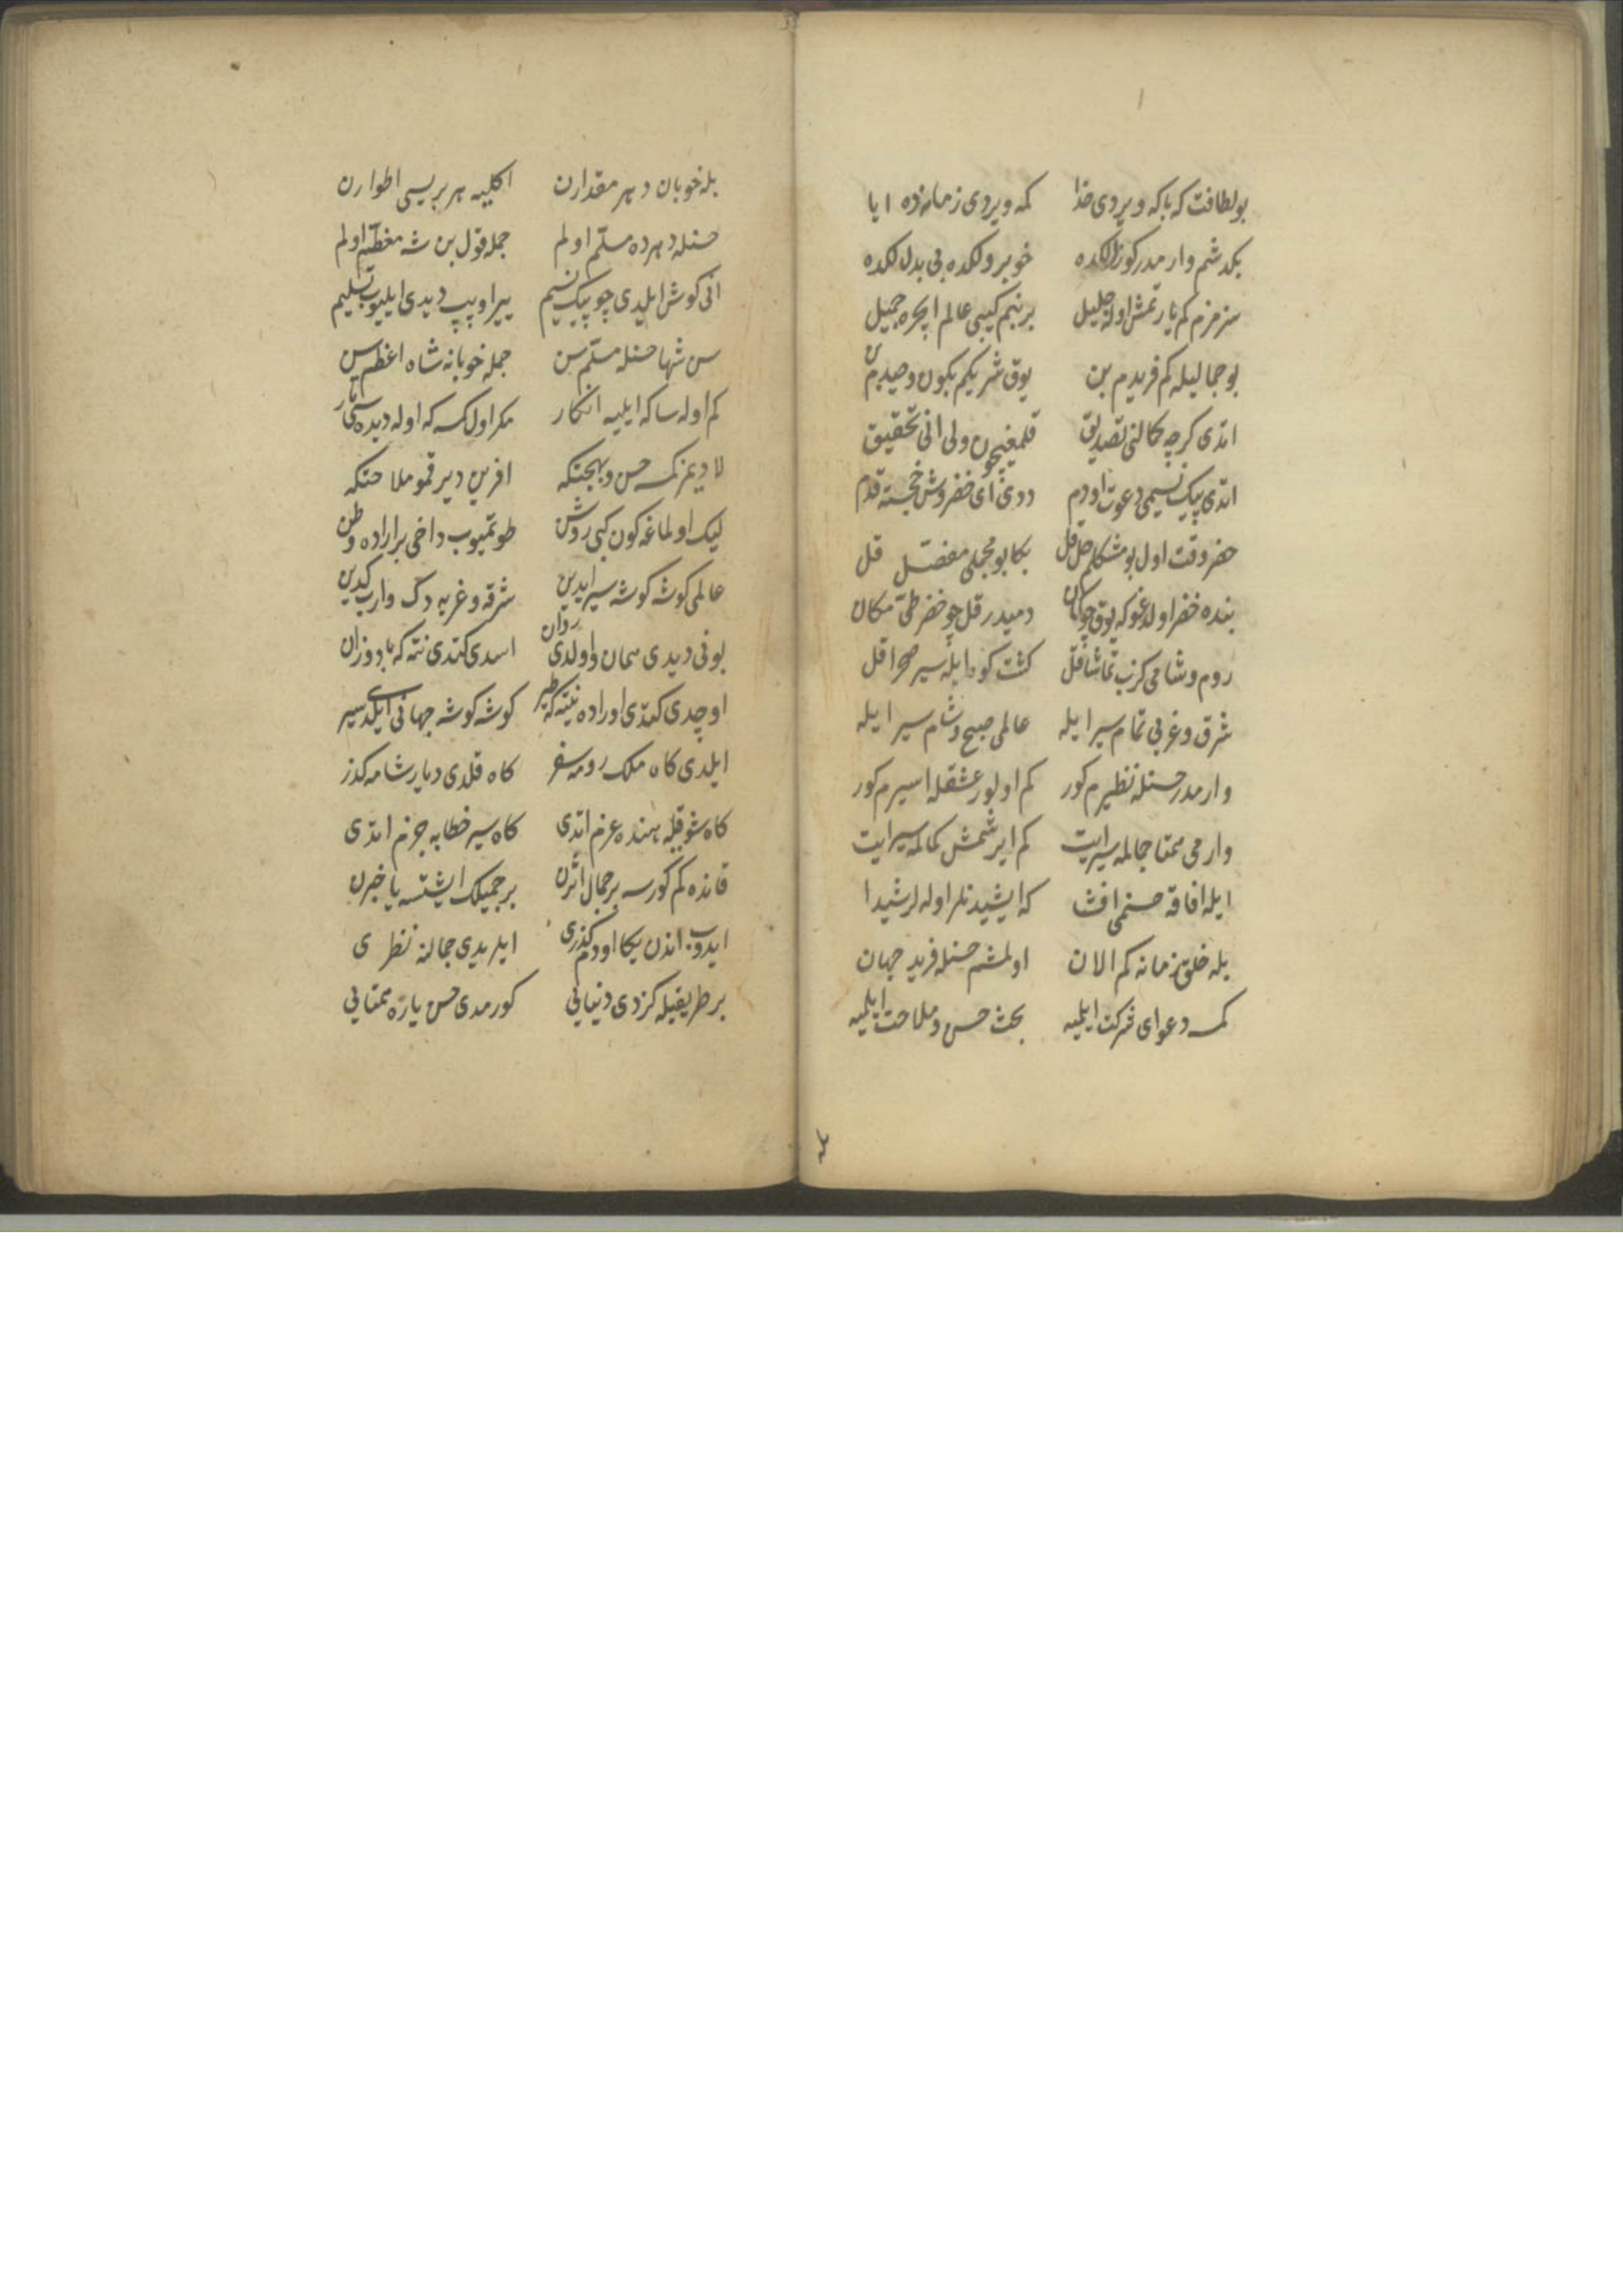 بو لطافت كه بكا ویردی خدا كمه ویردی زمانه‌ده ایا
بكدشم وار مدر كوزللكده خوبرولكده بی بدللكده
سزمزم كم یارتمش اوله جلیل بر بنم كیبی عالم ایچره جمیل
بو جمالیله كم فریدم بن یوق شریكم بكون وحیدم بن
اتدی كرچه كمالنی تصدیق قلمغیچون ولی انی تحقیق
اتدی پیك نسیمی دعوت اودم ددی ای خضروش خجسته قدم
خضر وقت اول بو مشكلم حل قل بكا بو مجملی مفصل قل
بنده خضر اولدغوكه یوق چو كمان دمیدر قل چو خضر طی مكان
روم و شامی كزب تماشا قل كشت كوه ایله سیر صحرا قل
شرق و غربی تمام سیر ایله عالمی صبح و شام سیر ایله
وار مدر حسنله نظیرم كور كم اولور عشقله اسیرم كور
وار می همتا جمالمه سیر ایت كم ایرشمش كمالمه سیر ایت
ایله افاقه حسنمی افشا كه ایشیدنلر اوله لر شیدا
بله خلق زمانه كم الان اولمشم حسنله فرید جهان
كمسه دعوای شركت ایلمیه بحث حسن و ملاحت ایلمیه
بله خوبان دهر مقدارن اكلیه هر بریسی اطوارن
حسنله دهرده مسلم اولم جمله قول بن شه معظم اولم
انی كوش ایلدی چو پیك نسیم ییر اوپپ دیدی ایلیوب تسلیم
سن شها حسنله مسلم سن جمله خوبانه شاه اعظم سن
كم اوله ساكه ایلیه انكار مكر اول كمسه كه اوله دیده سی تار
لا دیمز كمسه حسن و بهجتكه افرین دیر قمو ملاحتكه
لیك اولماغه كون كبی روشن طوتمیوب داخی بر اراده وطن
عالمی كوشه كوشه سیر ایدین شرقه و غربه دك واریب كیدین
بونی دیدی همان و اولدی روان اسدی كتدی نته كه باد وزان
اوچدی كتدی اوراده نیته كه طیر كوشه كوشه جهانی ایلدی سیر
ایلدی كاه ملك رومه سفر كاه قلدی دیار شامه كذر
كاه شوقیله هنده عزم اتدی كاه سیر خطایه جزم اتدی
قانده كم كورسه بر جمال اثرن بر جمیلك ایشتسه یا خبرن
ایدوب اندن یكا اودم كذری ایریدی جمالنه نظری
بر طریقیله كزدی دنیایی كورمدی حسن یاره همتایی